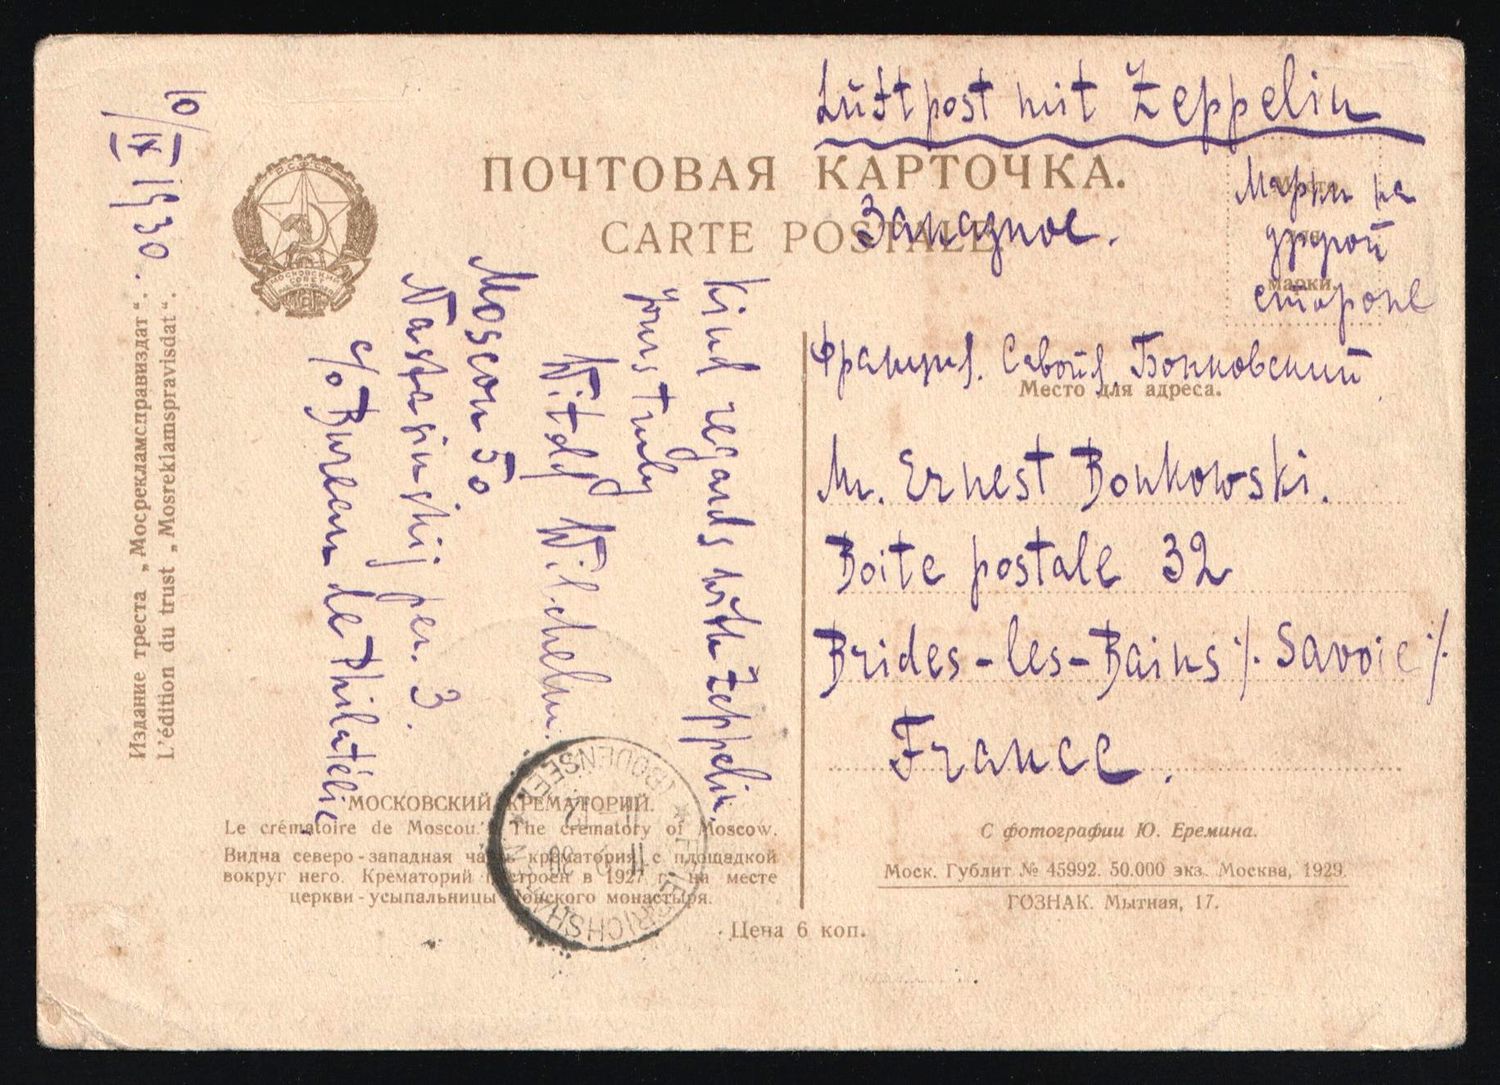 Luftpost mit Zeppelin
ПОЧТОВАЯ КАРТОЧКА.
CARTE POSTALE
Заказное.
Место
для
марки.
Марки на
другой
стороне
Франция. Савойя, Бонковский
Место для адреса.
Mr. Ernest Bonkowski.
Boite postale 32
Brides-les-Bains ./. Savoie ./.
France.
С фотографии Ю. Еремина.
Моск. Гублит № 45992. 50.000 экз. Москва, 1929.
ГОЗНАК. Мытная, 17.
Kind regards with Zeppelin.
Yours truly
Witold Wilchelm.
Moscou 50
Nastasinskij per. 3.
c/o Bureau de Philatélie.
10/IX 1930.
Р.С.Ф.С.Р.
МОСКОВСКИЙ
СОВЕТ
Издание треста „Мосрекламсправиздат“.
L'édition du trust „Mosreklamspravisdat“.
МОСКОВСКИЙ КРЕМАТОРИЙ.
Le crématoire de Moscou. The crematory of Moscow.
Видна северо-западная часть крематория с площадкой
вокруг него. Крематорий построен в 1927 г. на месте
церкви-усыпальницы Донского монастыря.
Цена 6 коп.
FRIEDRICHSHAFEN
(BODENSEE)